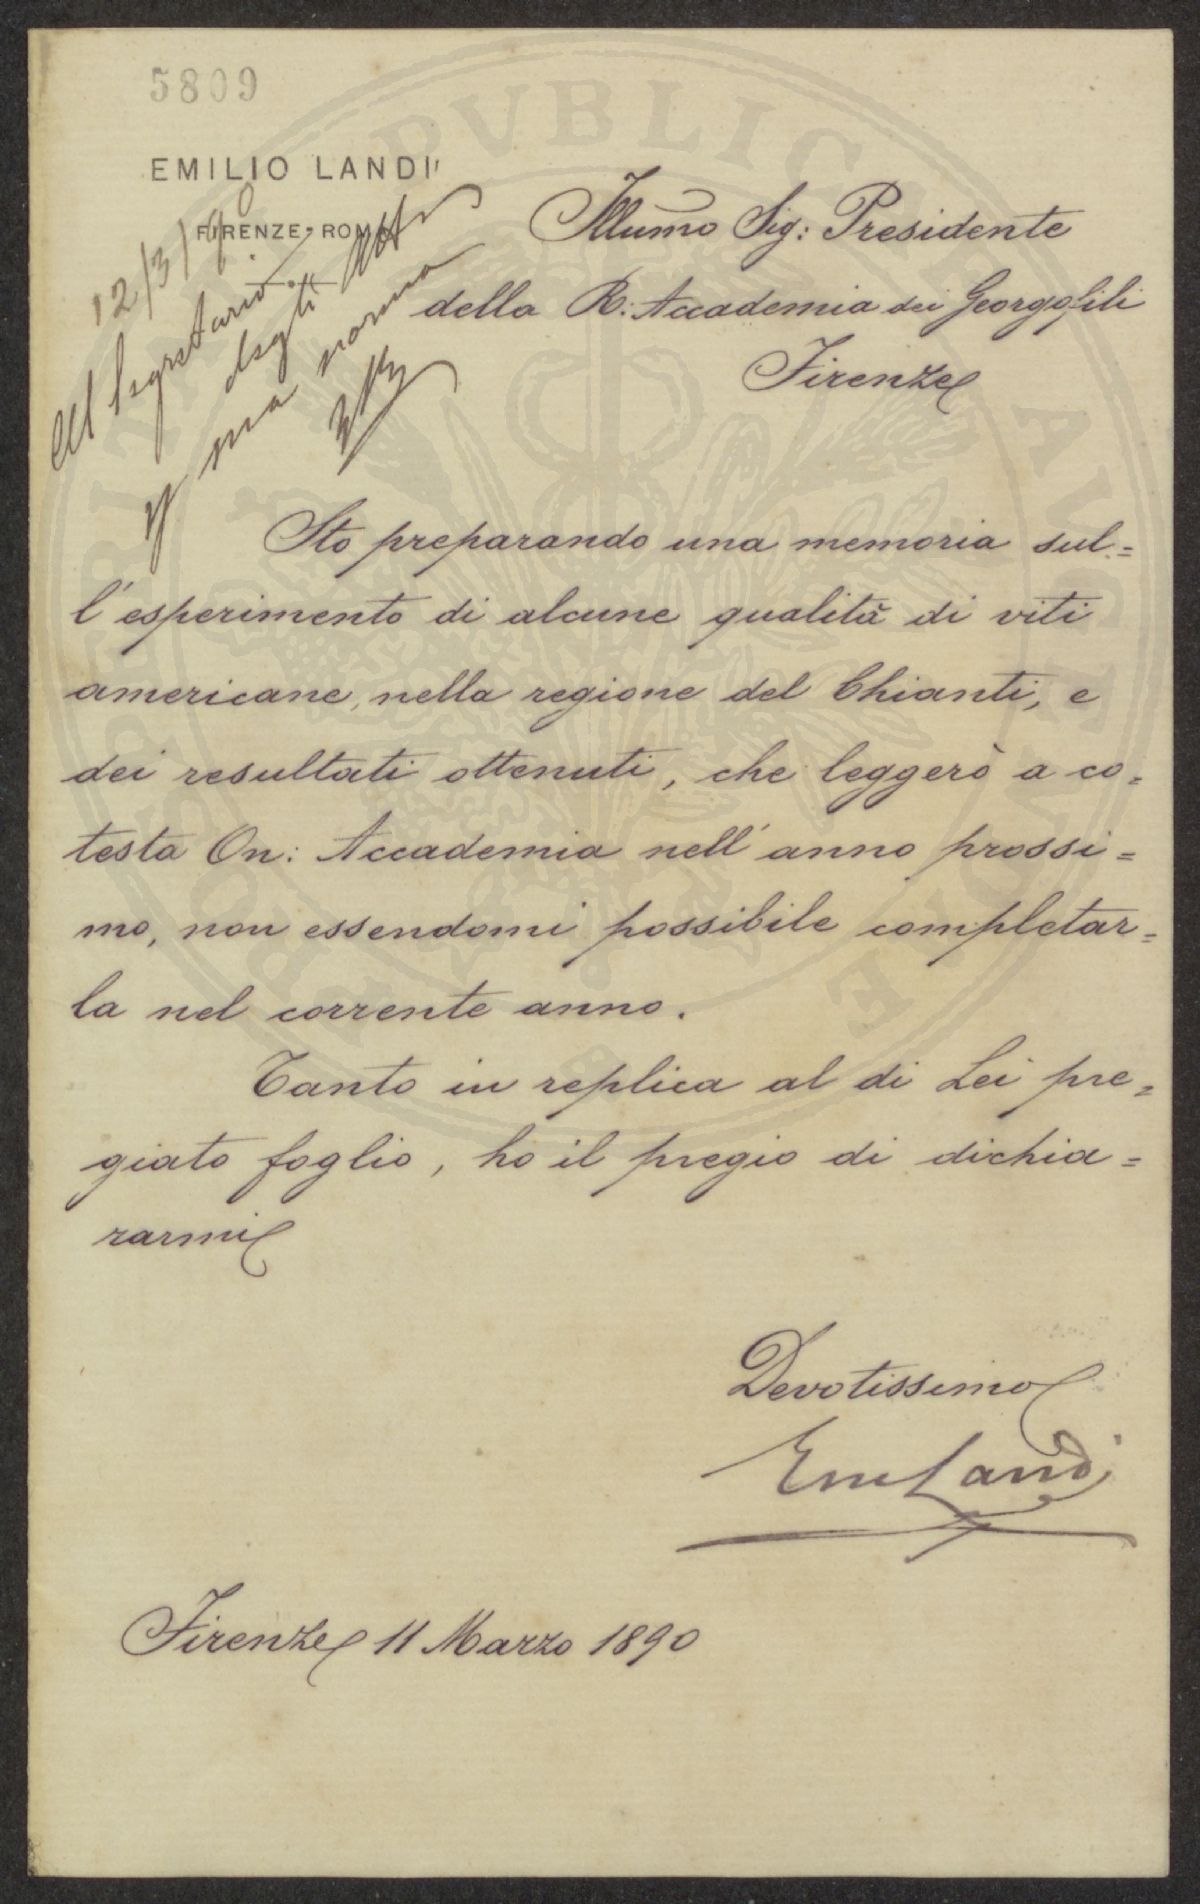 5809
EMILIO LANDI
FIRENZE-ROMA
12/3/90
Al Segretario
degli Atti
p sua norma
Illumo Sig: Presidente
della R: Accademia dei Georgofili
Firenze
Sto preparando una memoria sul=
l'esperimento di alcune qualità di viti
americane, nella regione del Chianti, e
dei resultati ottenuti, che leggerò a co=
testa On: Accademia nell'anno prossi=
mo, non essendomi possibile completar=
la nel corrente anno.
Tanto in replica al di Lei pre=
giato foglio, ho il pregio di dichia=
rarmi
Devotissimo
Em Landi
Firenze 11 Marzo 1890